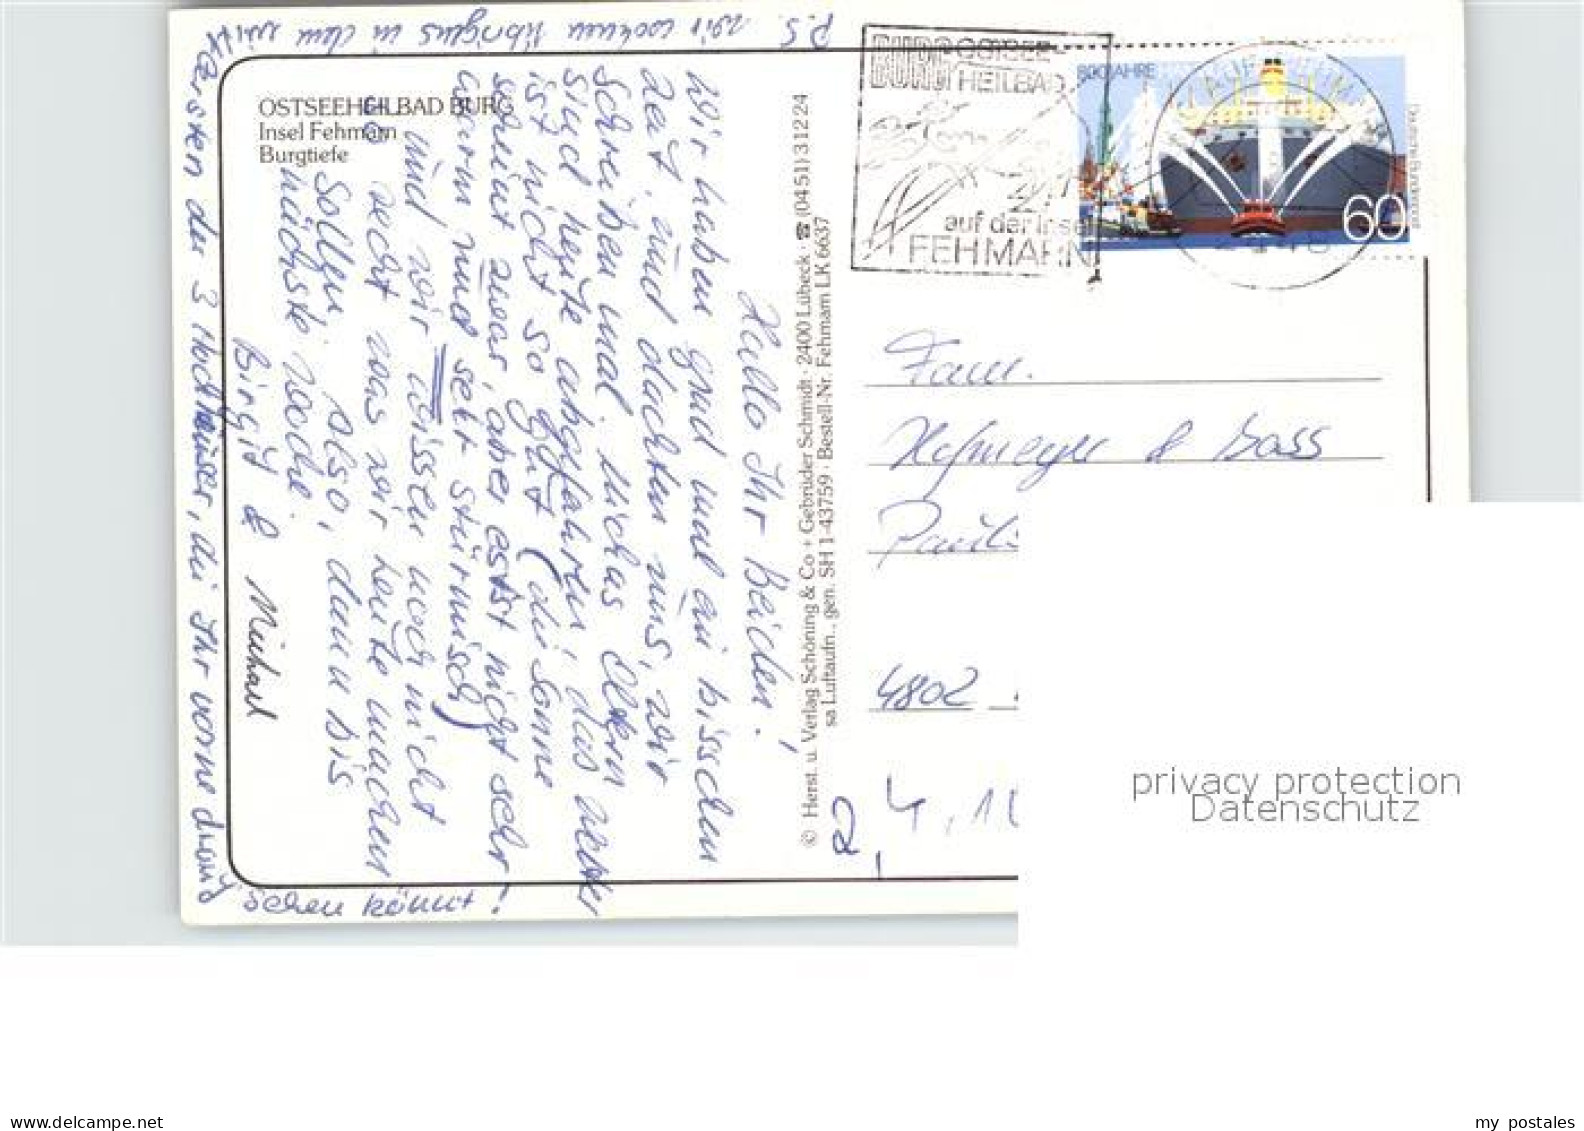 OSTSEEHEILBAD BURG
Insel Fehmarn
Burgtiefe
Hallo Ihr Beiden!
Wir haben grad mal ein bisschen
Zeit, und dachten uns, wir
schreiben mal. Michas Eltern
sind heute abgefahren, das Wetter
ist nicht so gut (die Sonne
scheint zwar, aber es ist nicht sehr
warm und sehr stürmisch)
und wir wissen noch nicht
so recht was wir heute machen
sollen. Also, dann bis
nächste Woche.
Birgid & Michael
P.S. wir wohnen übrigens in dem mitt-
lersten der 3 Hochhäuser, die Ihr vorne drauf
sehen könnt!
© Herst. u. Verlag Schöning & Co + Gebrüder Schmidt · 2400 Lübeck · ☎ (0451) 31224
sa Luftaufn., gen. SH 1-43759 · Bestell-Nr. Fehmarn LK 6637
BURG OSTSEE-
HEILBAD
auf der Insel
FEHMARN
800 JAHRE
Deutsche Bundespost
60
Fam.
Hofmeyer & Bass
4802
privacy protection
Datenschutz
www.delcampe.net
my postales